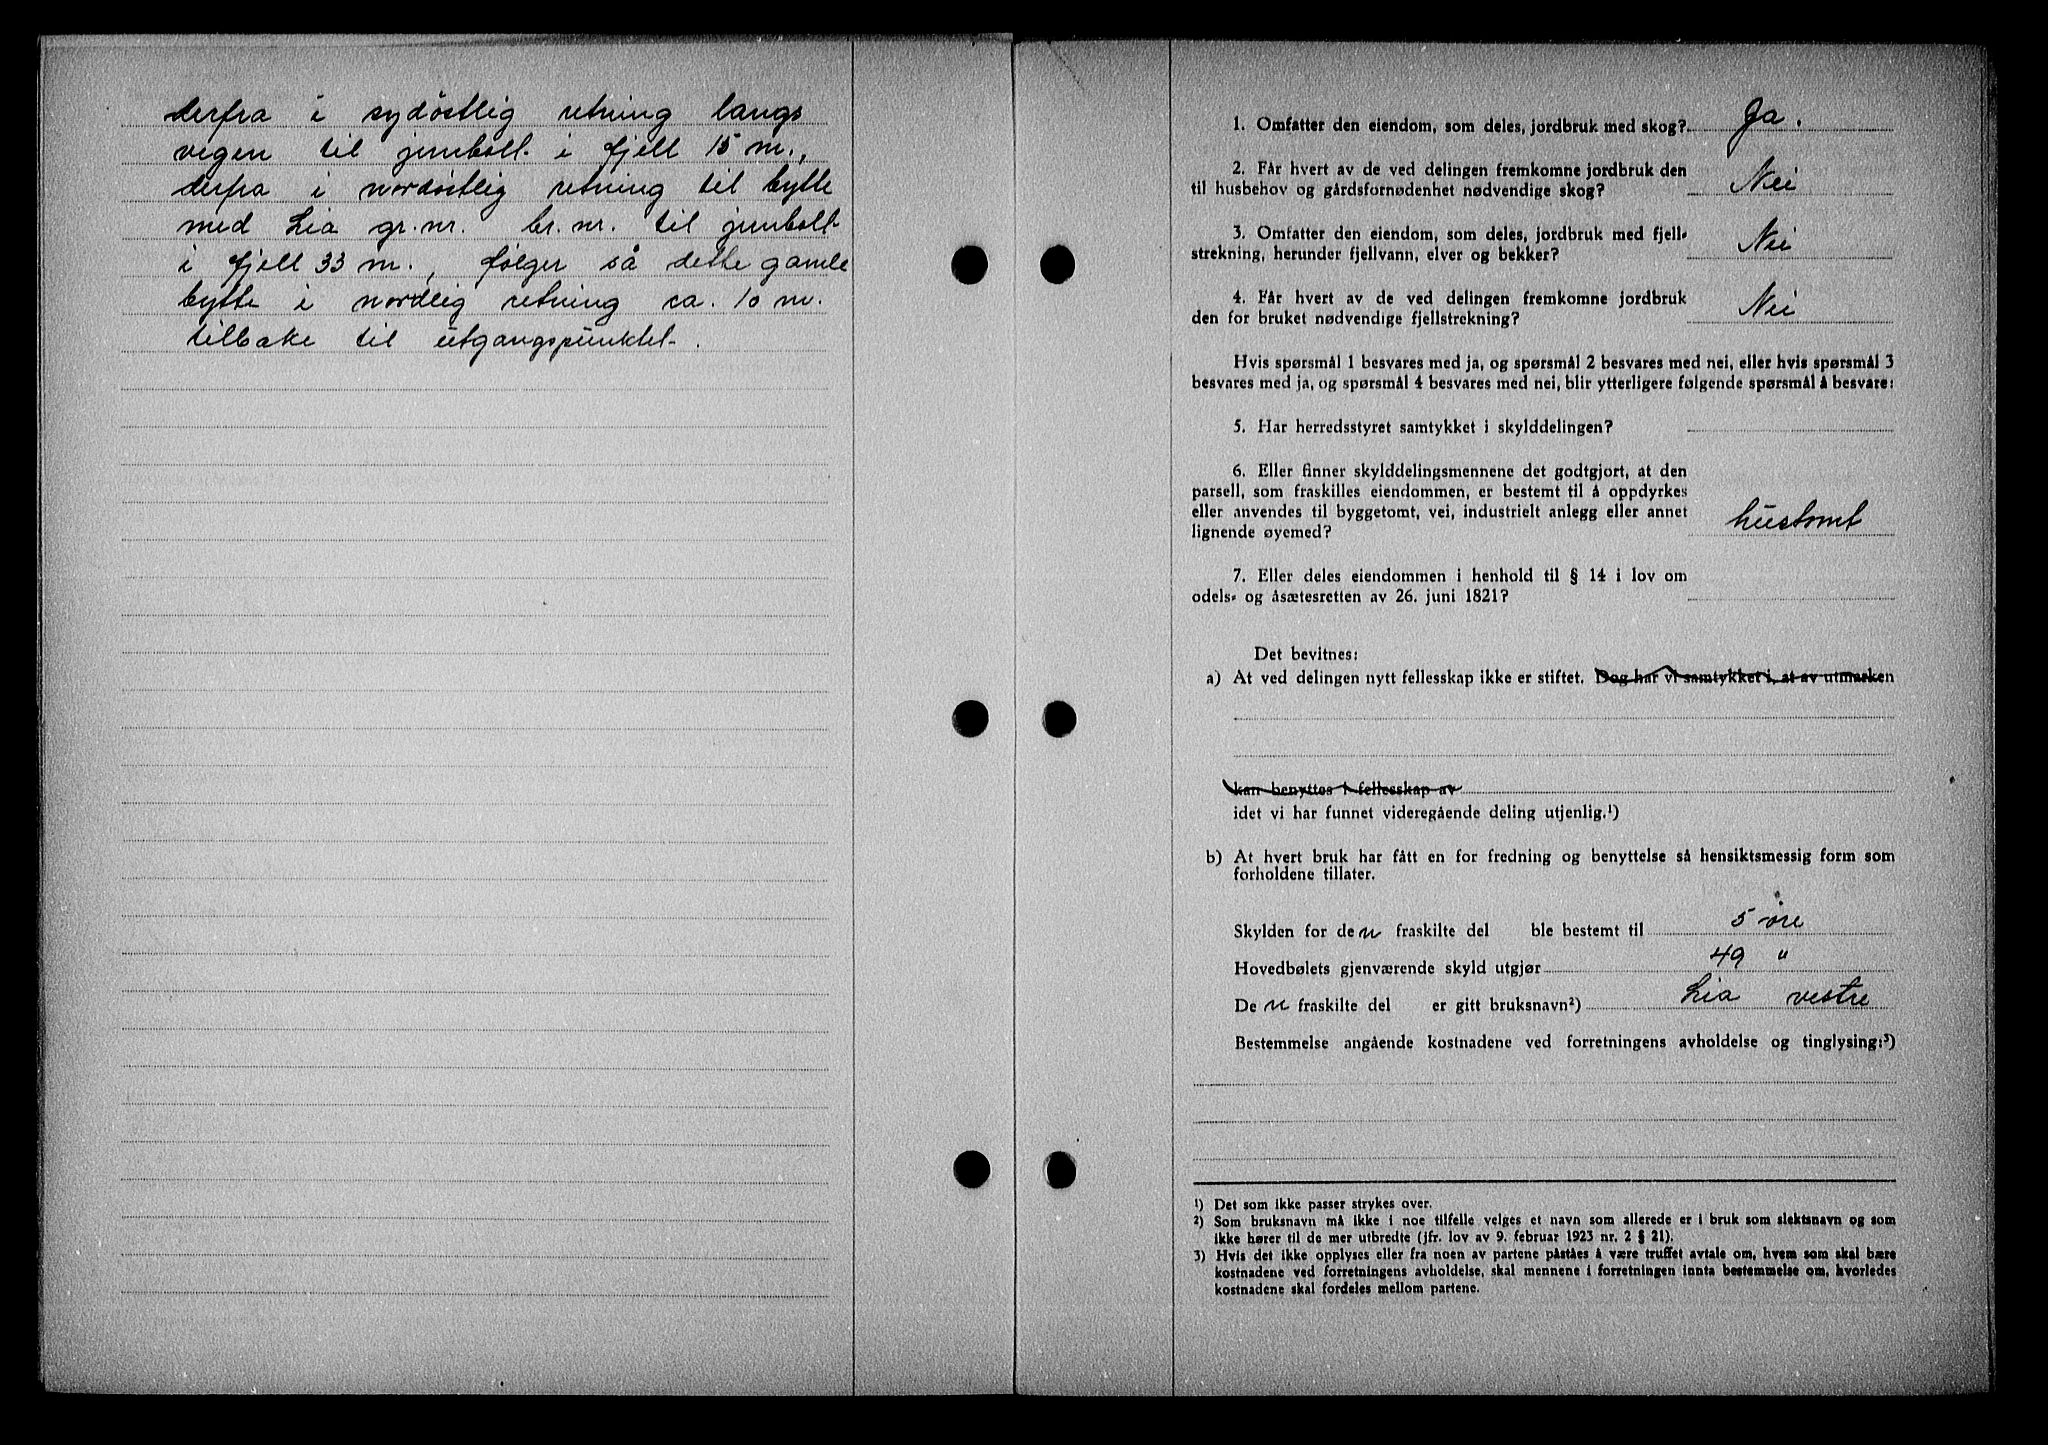 derfra i sydöstlig retning langs
vegen til jernbolt i fjell 15 m.,
derfra i nordöstlig retning til bytte
med Lia gr.nr. br.nr. til jernbolt
i fjell 33 m., følger så dette gamle
bytte i nordlig retning ca. 10 m.
tilbake til utgangspunktet.
1. Omfatter den eiendom, som deles, jordbruk med skog? Ja.
2. Får hvert av de ved delingen fremkomne jordbruk den
til husbehov og gårdsfornødenhet nødvendige skog? Nei
3. Omfatter den eiendom, som deles, jordbruk med fjell-
strekning, herunder fjellvann, elver og bekker? Nei
4. Får hvert av de ved delingen fremkomne jordbruk
den for bruket nødvendige fjellstrekning? Nei
Hvis spørsmål 1 besvares med ja, og spørsmål 2 besvares med nei, eller hvis spørsmål 3
besvares med ja, og spørsmål 4 besvares med nei, blir ytterligere følgende spørsmål å besvare:
5. Har herredsstyret samtykket i skylddelingen?
6. Eller finner skylddelingsmennene det godtgjort, at den
parsell, som fraskilles eiendommen, er bestemt til å oppdyrkes
eller anvendes til byggetomt, vei, industrielt anlegg eller annet
lignende øyemed? hustomt
7. Eller deles eiendommen i henhold til § 14 i lov om
odels- og åsætesretten av 26. juni 1821?
Det bevitnes:
a) At ved delingen nytt fellesskap ikke er stiftet. Dog har vi samtykket i, at av utmarken
kan benyttes i fellesskap av
idet vi har funnet videregående deling utjenlig.¹)
b) At hvert bruk har fått en for fredning og benyttelse så hensiktsmessig form som
forholdene tillater.
Skylden for den fraskilte del ble bestemt til 5 øre
Hovedbølets gjenværende skyld utgjør 49 "
Den fraskilte del er gitt bruksnavn²) Lia vestre
Bestemmelse angående kostnadene ved forretningens avholdelse og tinglysing:³)
¹) Det som ikke passer strykes over.
²) Som bruksnavn må ikke i noe tilfelle velges et navn som allerede er i bruk som slektsnavn og som
ikke hører til de mer utbredte (jfr. lov av 9. februar 1923 nr. 2 § 21).
3) Hvis det ikke opplyses eller fra noen av partene påståes å være truffet avtale om, hvem som skal bære
kostnadene ved forretningens avholdelse, skal mennene i forretningen innta bestemmelse om, hvorledes
kostnadene skal fordeles mellom partene.